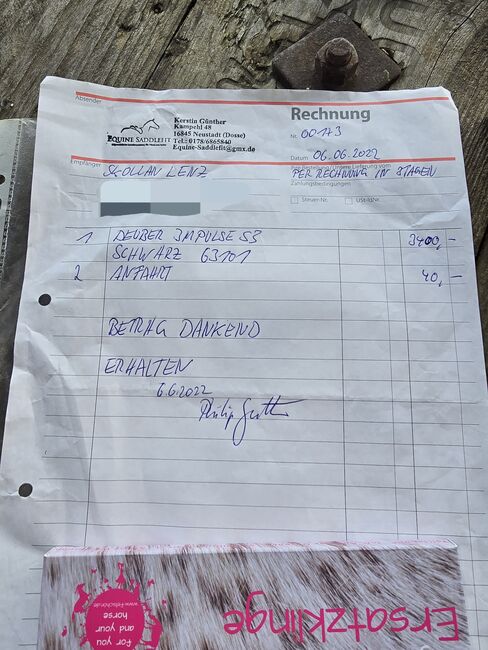 Absender
EQUINE SADDLEFIT
Kerstin Günther
Kampehl 48
16845 Neustadt (Dosse)
Tel.: 0178/6865840
Equine-Saddlefit@gmx.de
Rechnung
Nr. 00173
Datum 06.06.2022
Empfänger
LENZ
PER RECHNUNG IN 8 TAGEN
Zahlungsbedingungen
Steuer-Nr.
USt-IdNr.
1 DEUBER IMPULSE S3 3400,-
SCHWARZ 63101
2 ANFAHRT 40,-
BETRAG DANKEND
ERHALTEN
6.6.2022
Ersatzklinge
for you
and your
horse